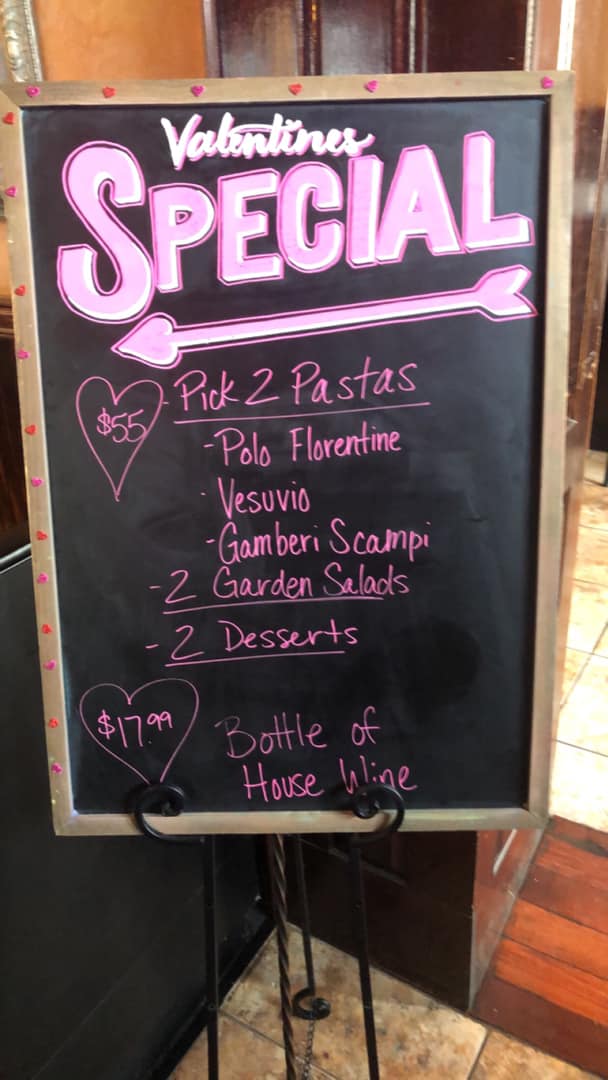 Valentines
SPECIAL
$55 Pick 2 Pastas
- Polo Florentine
- Vesuvio
- Gamberi Scampi
- 2 Garden Salads
- 2 Desserts
$17.99 Bottle of
House Wine